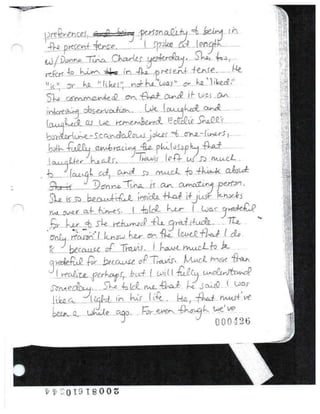 preferences, and being personality & being in
the present tense. I spoke at length
w/Donna Tina Charles yesterday. She, too,
refers to him in the present tense. He
"is", or he "likes", not he "was" or he "liked."
She commented on that and it was an
interesting observation. We laughed and
laughed as we remembered Eddie Snell's
borderline-scandalous jokes & one-liners,
both fully embracing the philosophy that
laughter heals. Travis left us so much
to laugh at, and so much to think about
She is Donna Tina is an amazing person.
She is so beautiful inside that it just knocks
me over at times. I told her I was grateful
for her & she returned the gratitude. The
only reason I know her on the level that I do
is because of Travis. I have much to be
grateful for because of Travis. Much more than
I realize perhaps, but I will fully understand
someday. She told me that he said I was
like a light in his life. Ha, that must've
been a while ago. For even though we've
000426
20081610244